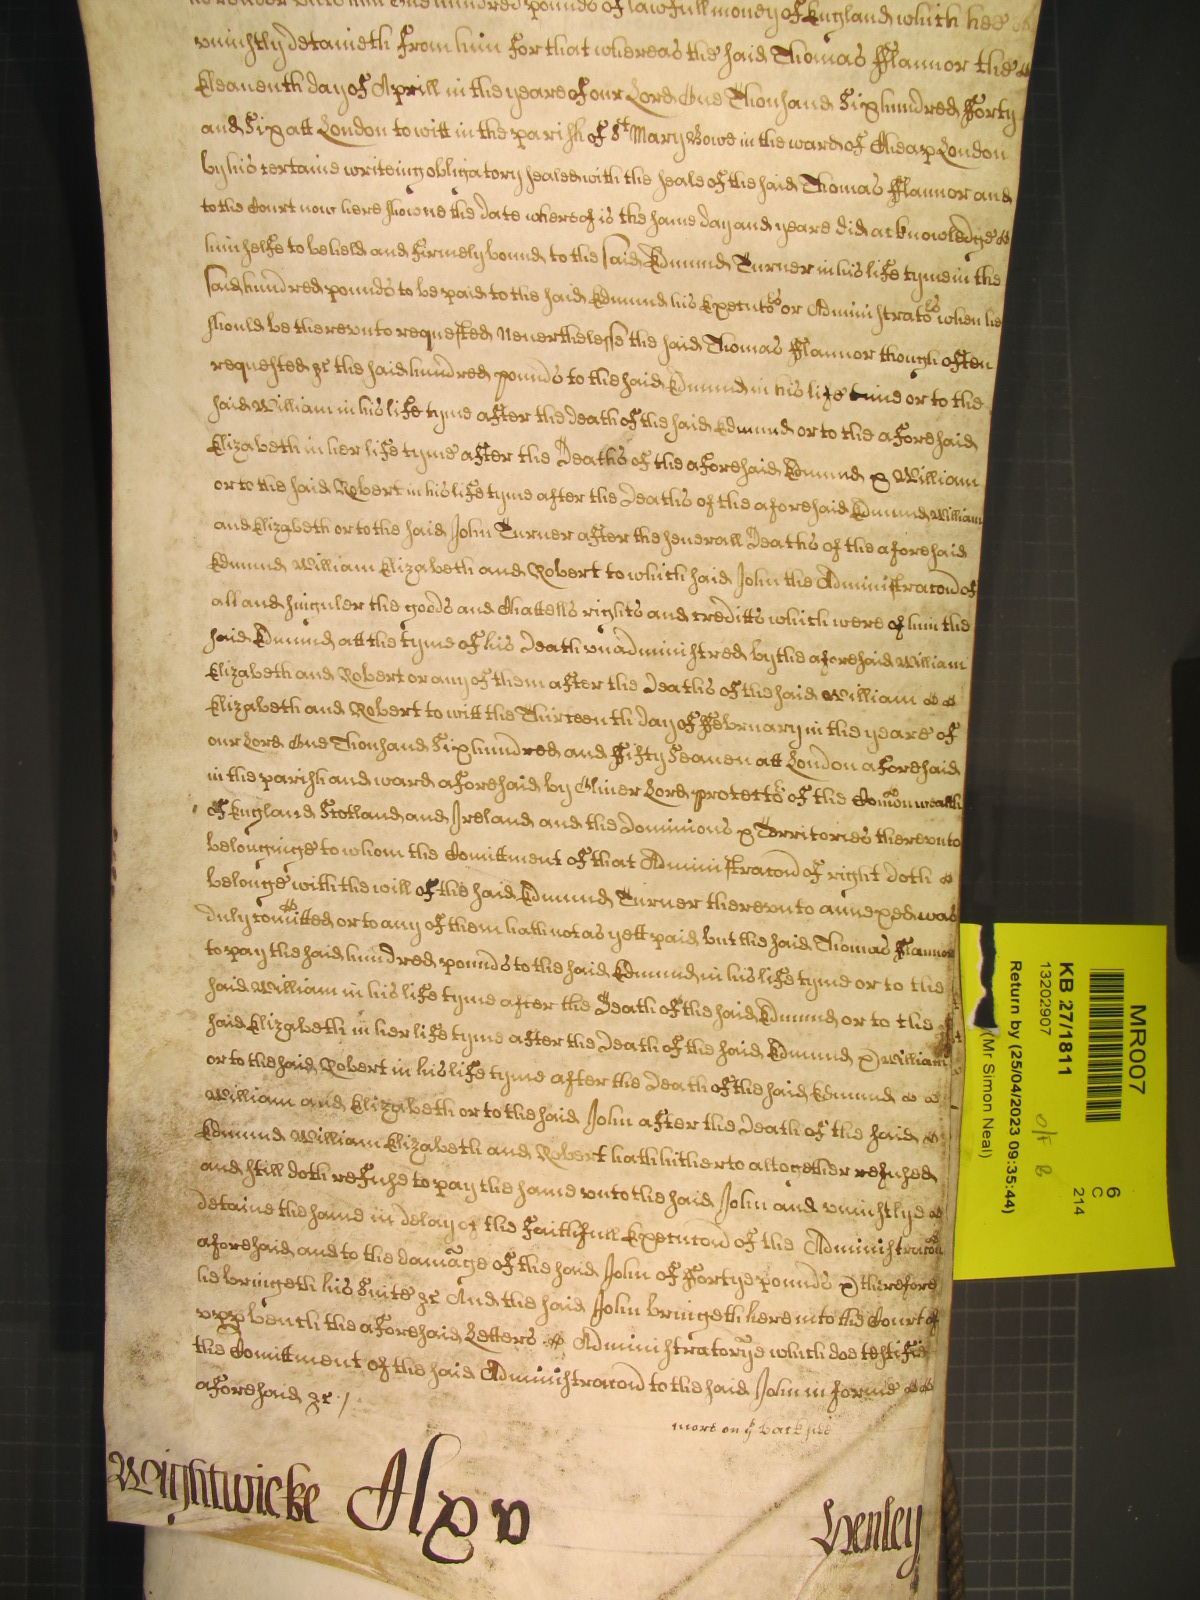 to render unto him One hundred pounds of lawfull money of England which hee
uniustly detaineth from him For that whereas the said Thomas Flannor the
Eleaventh day of Aprill in the yeare of our Lord One Thousand Sixhundred Forty
and Six att London to witt in the parish of St Mary Bowe in the ward of Cheap London
by his certaine writeing obligatory sealed with the seale of the said Thomas Flannor and
to the Court now here showne the date whereof is the same day and yeare did acknowledge
himselfe to beheld and firmely bound to the said Edmund Turner in his life tyme in the
said hundred pounds to be paid to the said Edmund his Executors or Administrators when he
should be thereunto requested Neverthelesse the said Thomas Flannor though often
requested &c the said hundred pounds to the said Edmund in his life time or to the
said William in his life tyme after the death of the said Edmund or to the aforesaid
Elizabeth in her life tyme after the Deaths of the aforesaid Edmund & William
or to the said Robert in his life tyme after the Deaths of the aforesaid Edmund William
and Elizabeth or to the said John Turner after the severall Deaths of the aforesaid
Edmund William Elizabeth and Robert to which said John the Administracon of
all and singuler the goods and Chattells rights and creditts which were of him the
said Edmund att the tyme of his Death unadministred by the aforesaid William
Elizabeth and Robert or any of them after the Deaths of the said William
Elizabeth and Robert to witt the Thirteenth day of February in the yeare of
our Lord One Thousand Sixhundred and Fifty Seaven att London aforesaid
in the parish and ward aforesaid by Oliver Lord protector of the Comonwealth
of England Scotland and Ireland and the Dominions & Territories thereunto
belonginge to whom the Comittment of that Administracon of right doth
belonge with the will of the said Edmund Turner thereunto annexed was
duly comitted or to any of them hath not as yett paid but the said Thomas Flannor
to pay the said hundred pounds to the said Edmund in his life tyme or to the
said William in his life tyme after the Death of the said Edmund or to the
said Elizabeth in her life tyme after the Death of the said Edmund & William
or to the said Robert in his life tyme after the Death of the said Edmund
William and Elizabeth or to the said John after the Death of the said
Edmund William Elizabeth and Robert hath hitherto altogether refused
and still doth refuse to pay the same unto the said John and uniustlye
detaine the same in delay of the Faithfull Execucon of the Administracon
aforesaid and to the damage of the said John of Fortye pounds & therefore
he bringeth his Suite &c And the said John bringeth here into the Court of
upp bench the aforesaid Letters Administratorye which doe testifie
the Comittment of the said Administracon to the said John in forme
aforesaid &c /
more on ye backside
Wightwicke Alxv Henley
MR007
6
C
214
KB 27/1811
13202907
o/s B
Return by (25/04/2023 09:35:44)
(Mr Simon Neal)